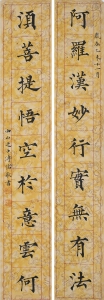 阿羅漢妙行實無有法
須菩提悟空於意雲何